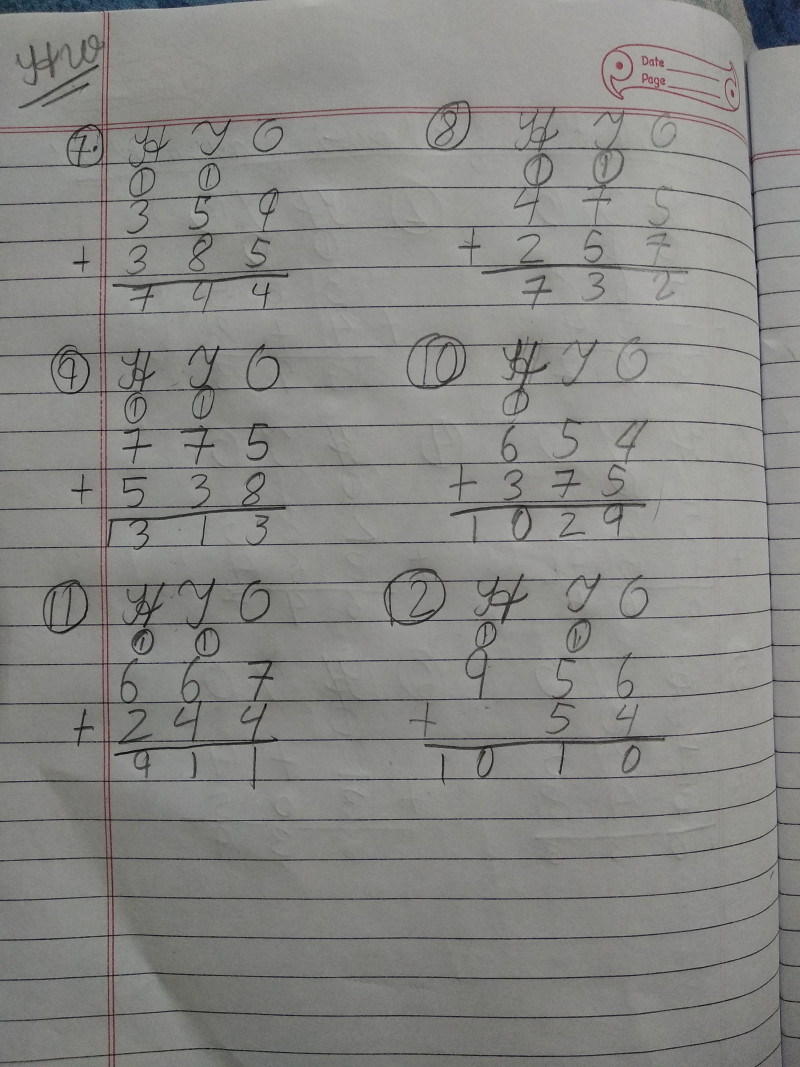 HW
Date
Page
7. H T O
① ①
3 5 9
+ 3 8 5
7 4 4
8 H T O
① ①
4 7 5
+ 2 5 7
7 3 2
9 H T O
① ①
7 7 5
+ 5 3 8
1 3 1 3
10 H T O
①
6 5 4
+ 3 7 5
1 0 2 9
11 H T O
① ①
6 6 7
+ 2 4 4
9 1 1
12 H T O
① ①
9 5 6
+ 5 4
1 0 1 0